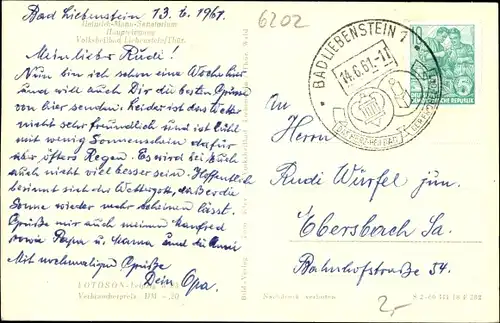 Bad Liebenstein 13.6.1961.
6202
Heinrich-Mann-Sanatorium
Haupteingang
Volksheilbad Liebenstein/Thür.
Mein lieber Rudi!
Nun bin ich schon eine Woche hier
und will auch Dir die besten Grüsse
von hier senden. Leider ist das Wetter
nicht sehr freundlich und ist kühl
mit wenig Sonnenschein dafür
aber öfters Regen. Es wird bei Euch
auch nicht viel besser sein. Hoffentlich
besinnt sich der Wettergott, daß er die
Sonne wieder mehr scheinen lässt.
Grüße mir auch meinen Manfred
sowie Papa u. Mama und die
Mit nochmaligen Grüße
Dein Opa.
Verbraucherpreis DM -.20
BAD LIEBENSTEIN 1
14.6.61-11
An
Herrn
Rudi Würfel jun.
Ebersbach Sa.
Bahnhofstraße 54.
Nachdruck verboten
2,-